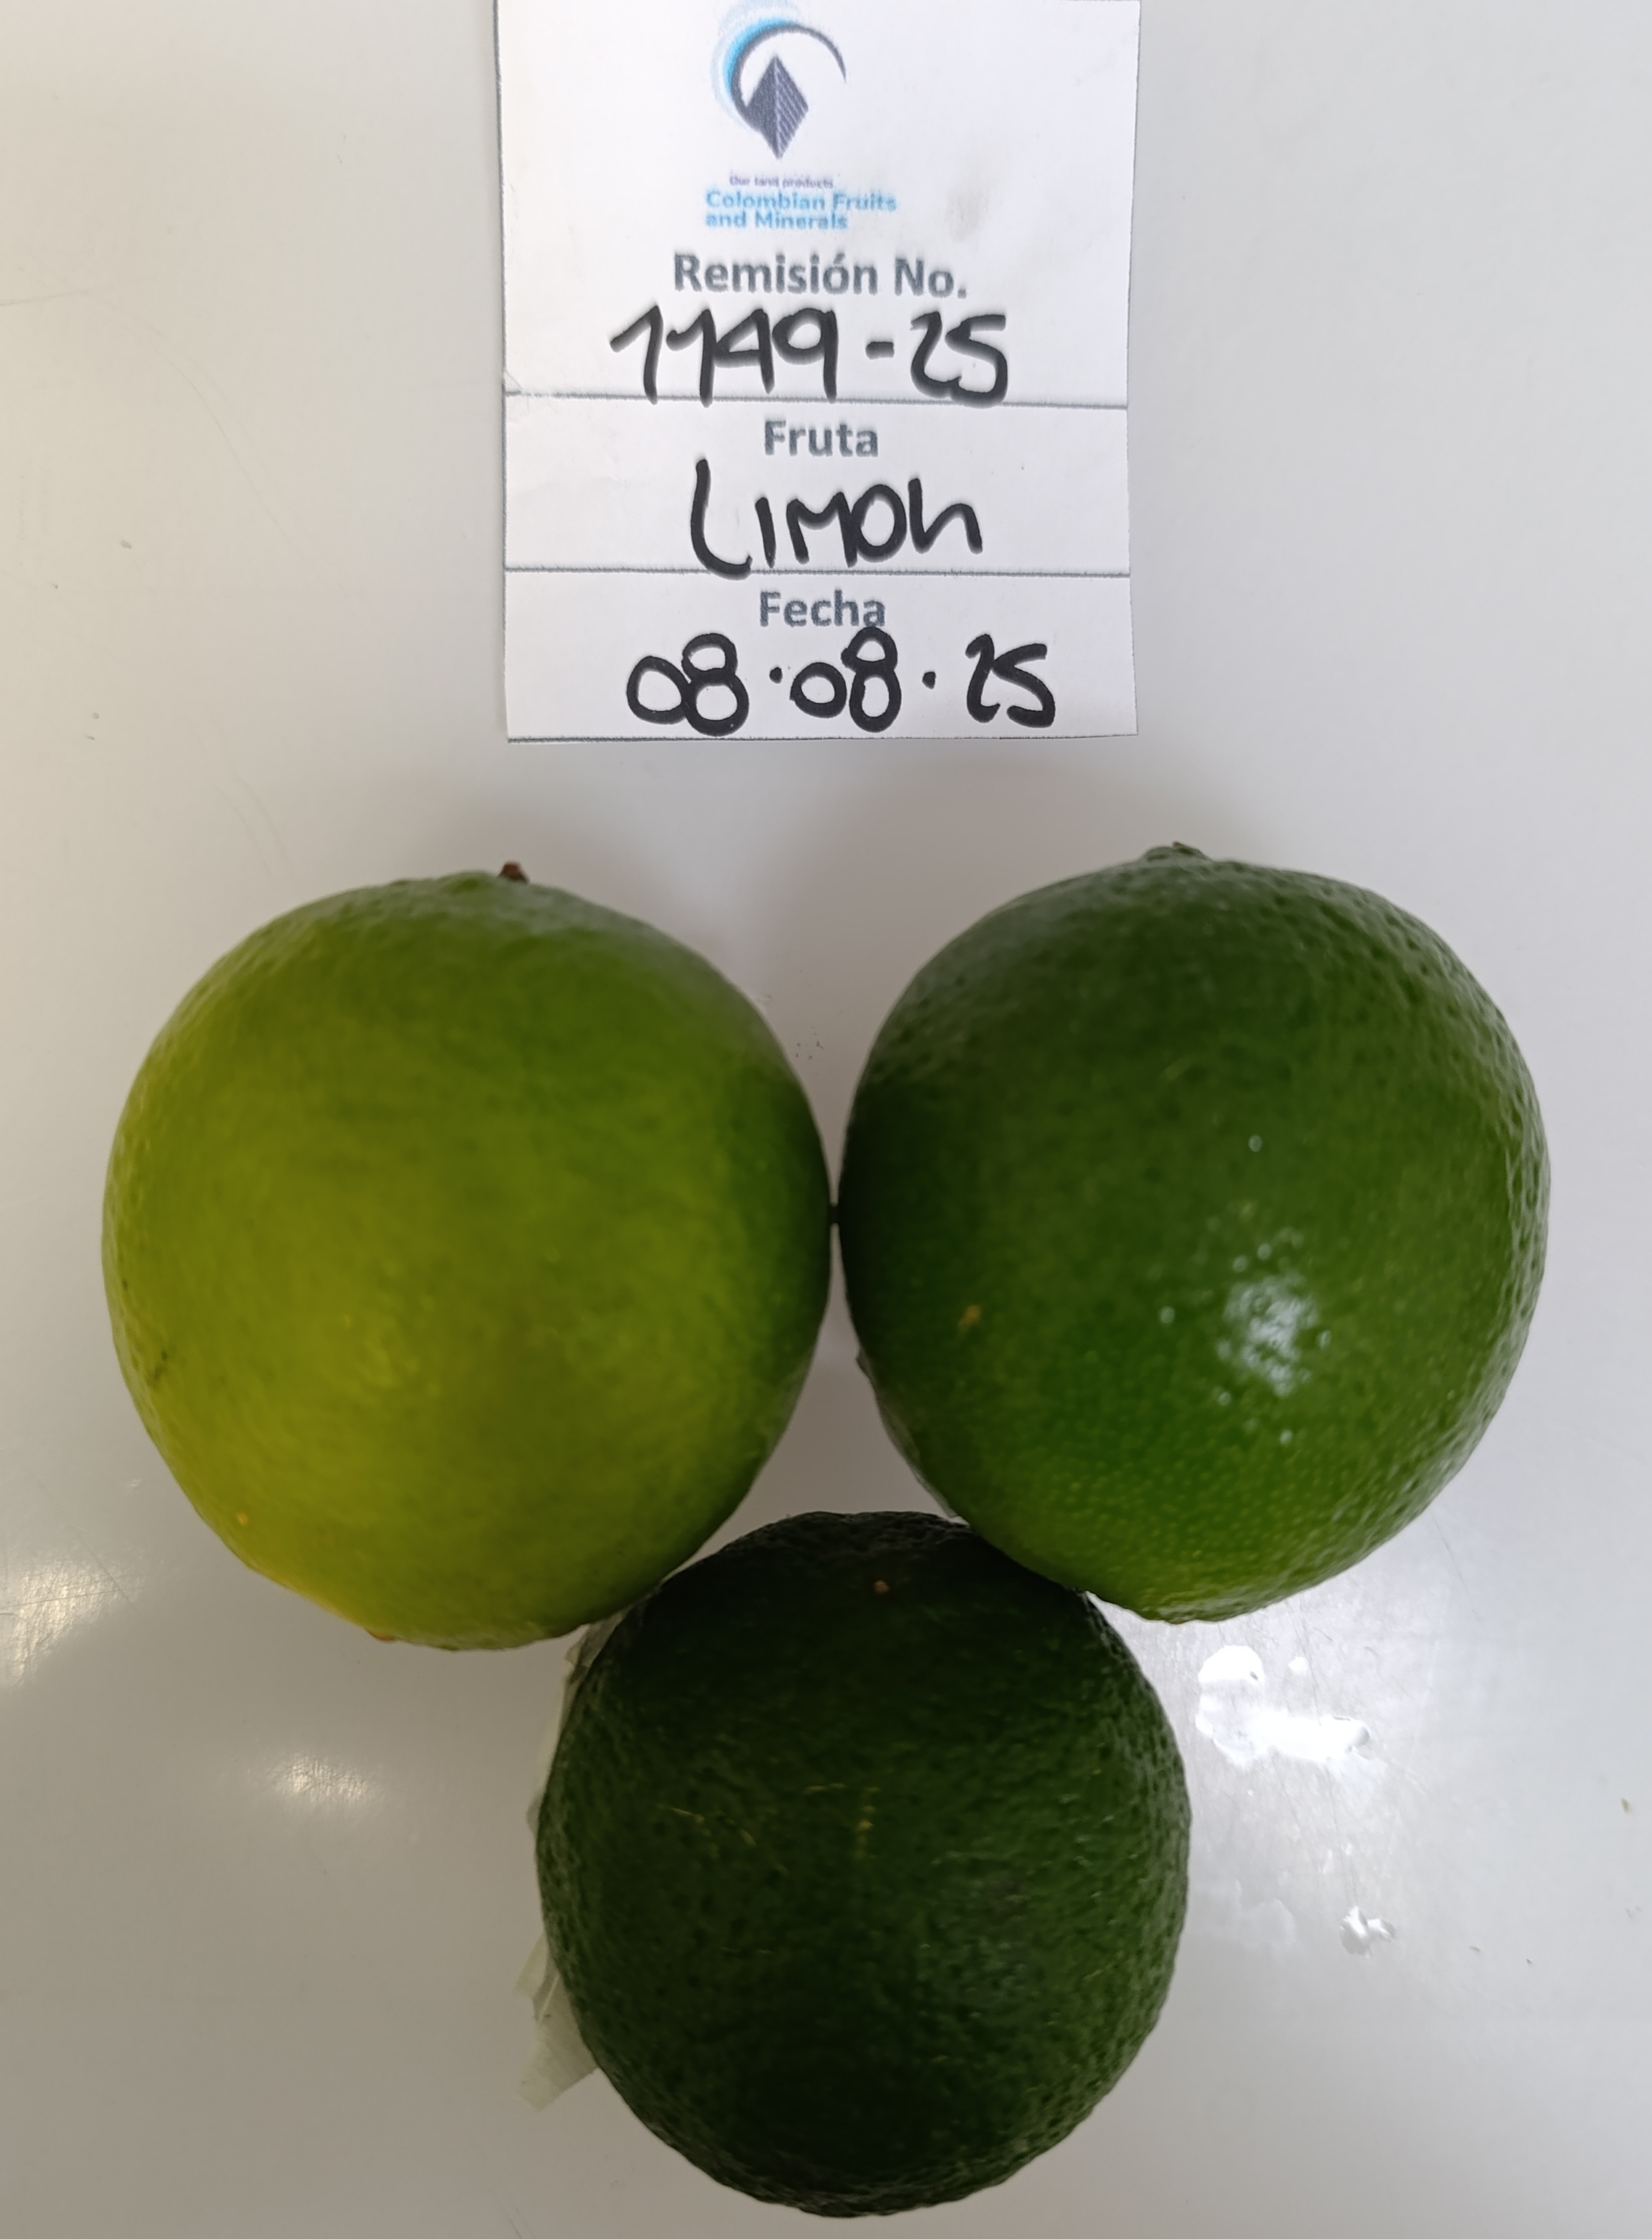 Our land products
Colombian Fruits
and Minerals
Remisión No.
1149-25
Fruta
LIMON
Fecha
08·08·25